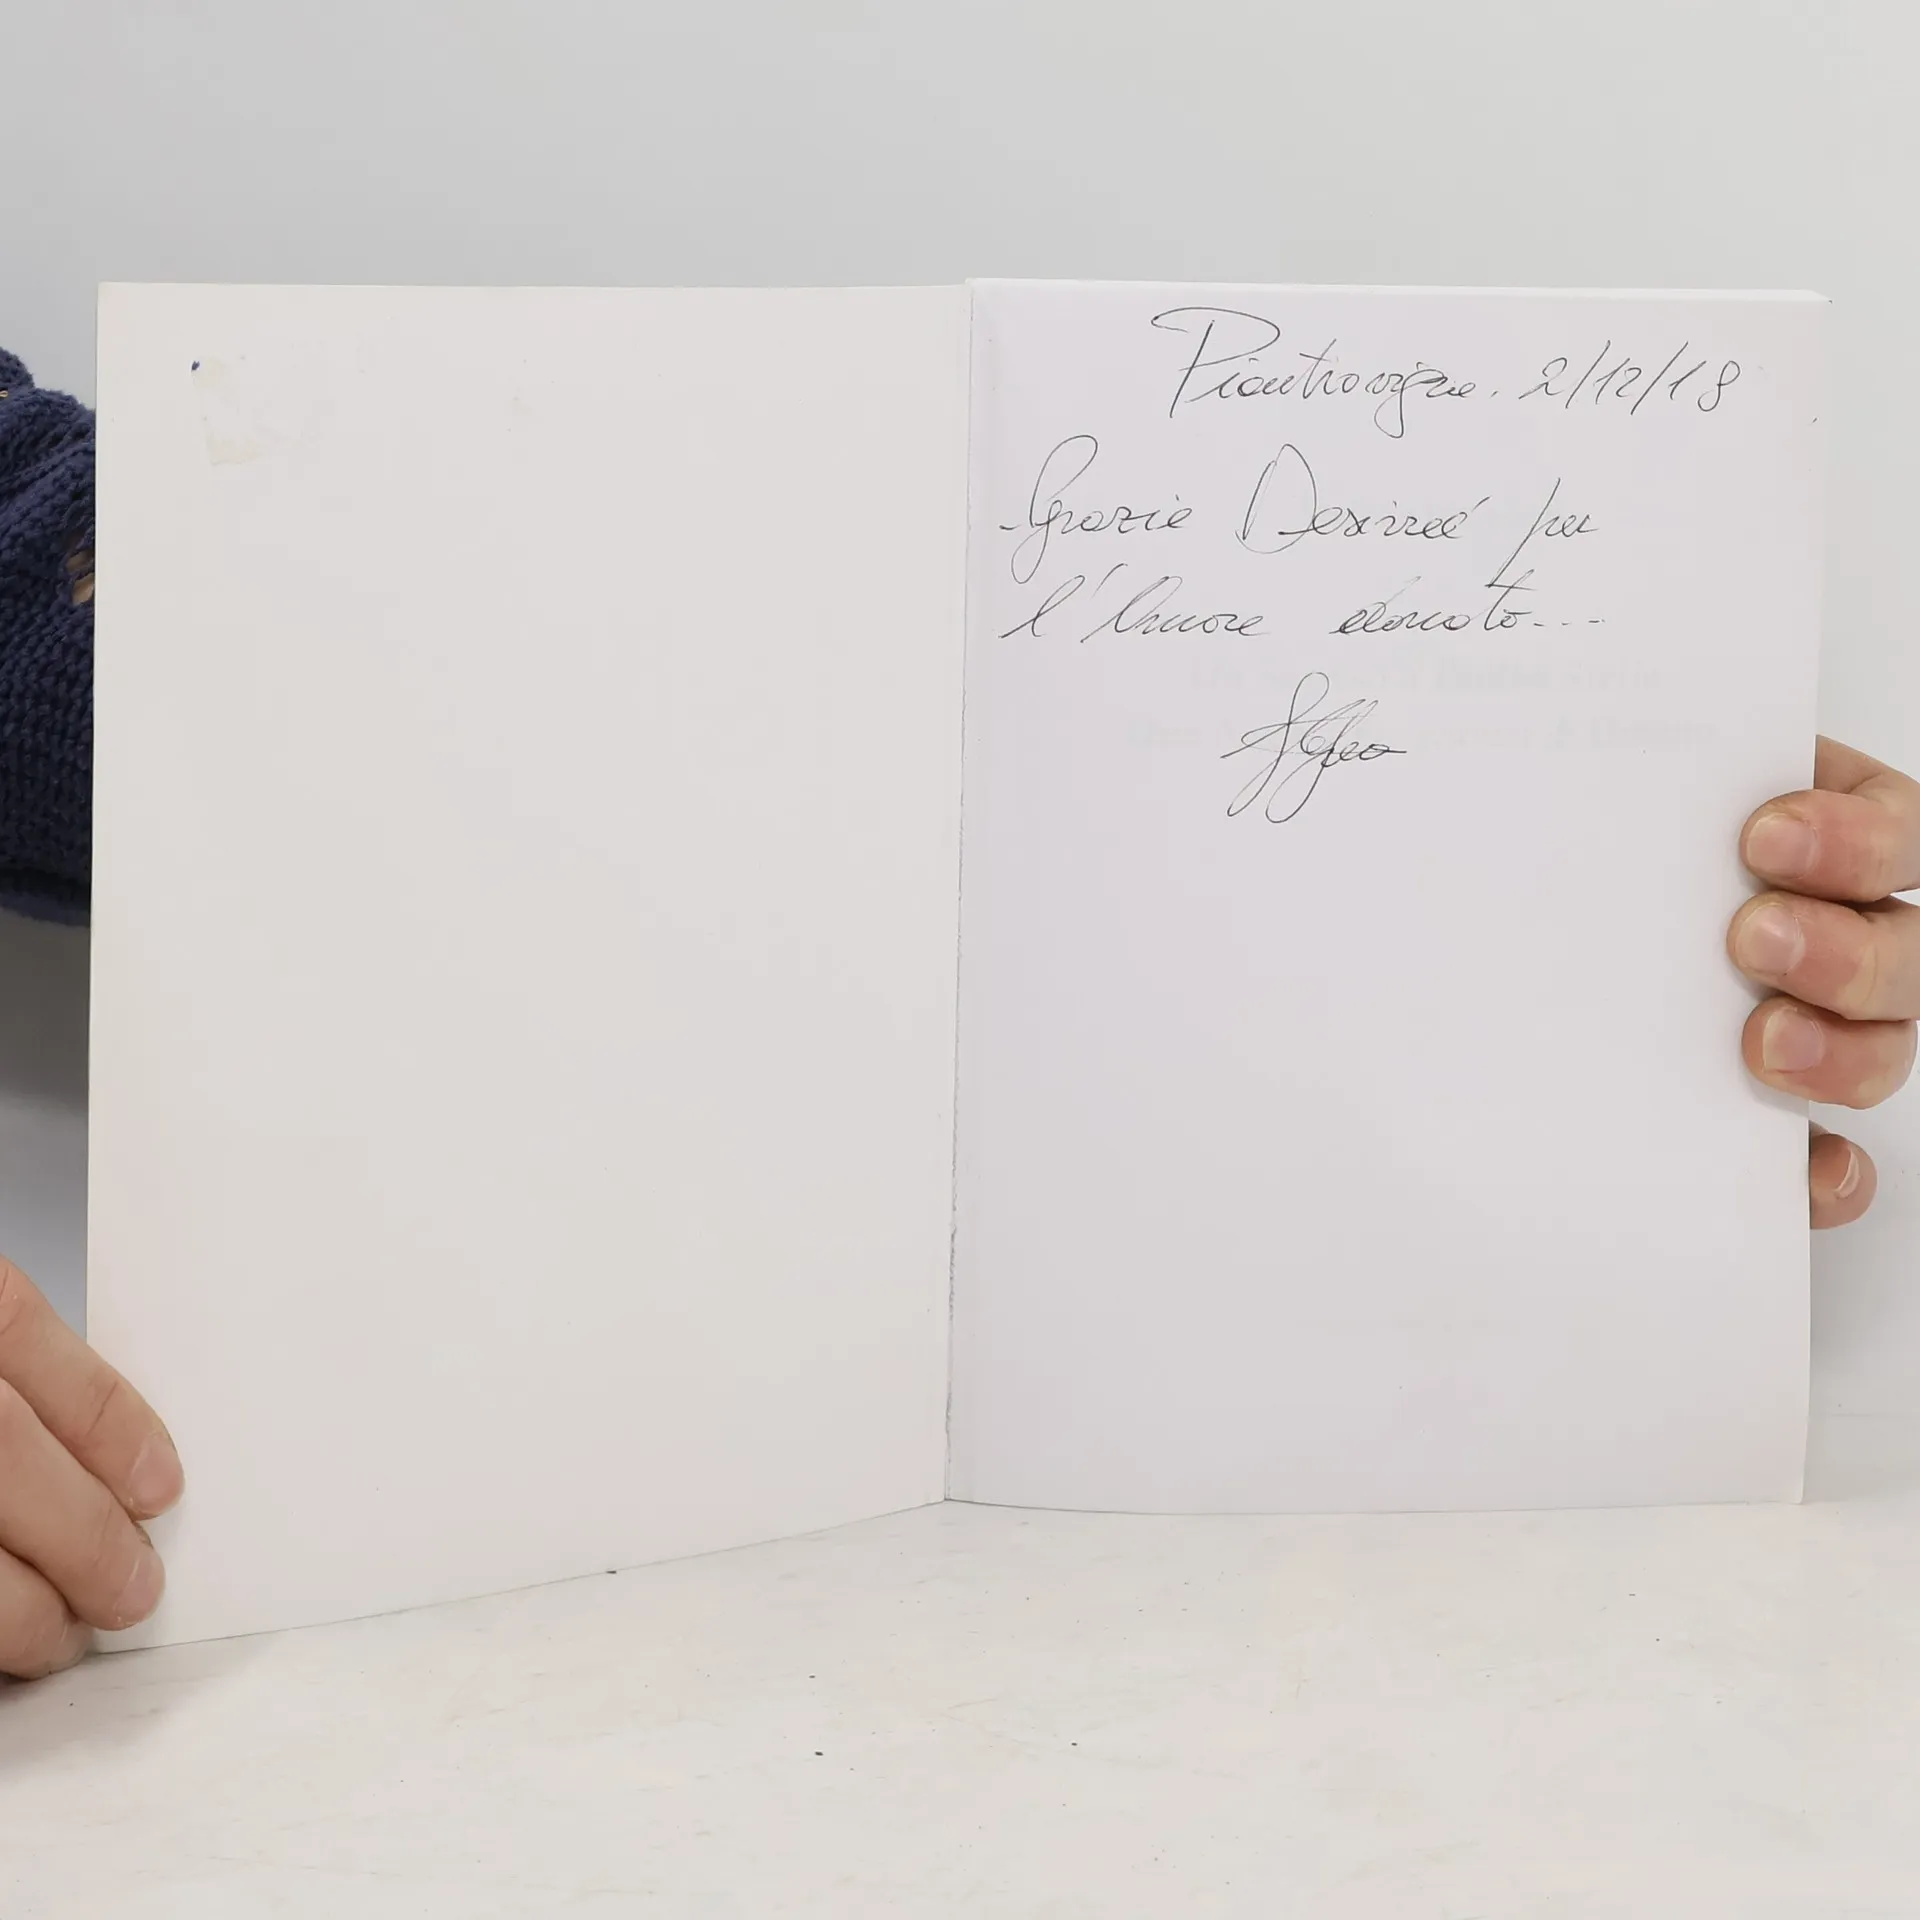 Piantravigne. 2/12/18
Grazie Desireé per
l'Amore donato....